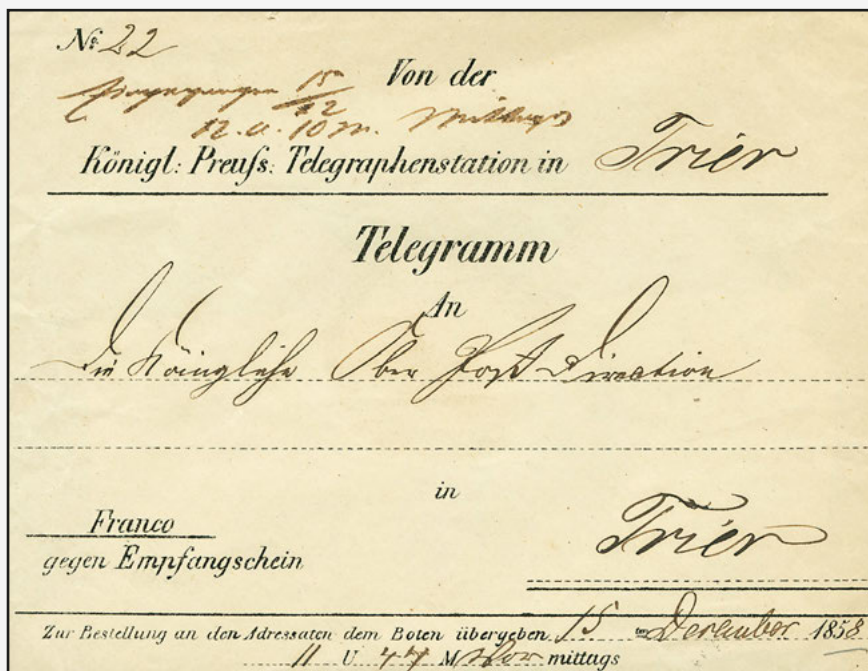 No 22
Von der
Eingegangen 15/12
12. U. 10 M. Mittags
Königl: Preuſs: Telegraphenstation in Trier
Telegramm
An
die Königliche Ober Post Direction
in
Franco
Trier
gegen Empfangschein
Zur Bestellung an den Adressaten dem Boten übergeben 15 ten December 1858
11 U 47 M Vor mittags